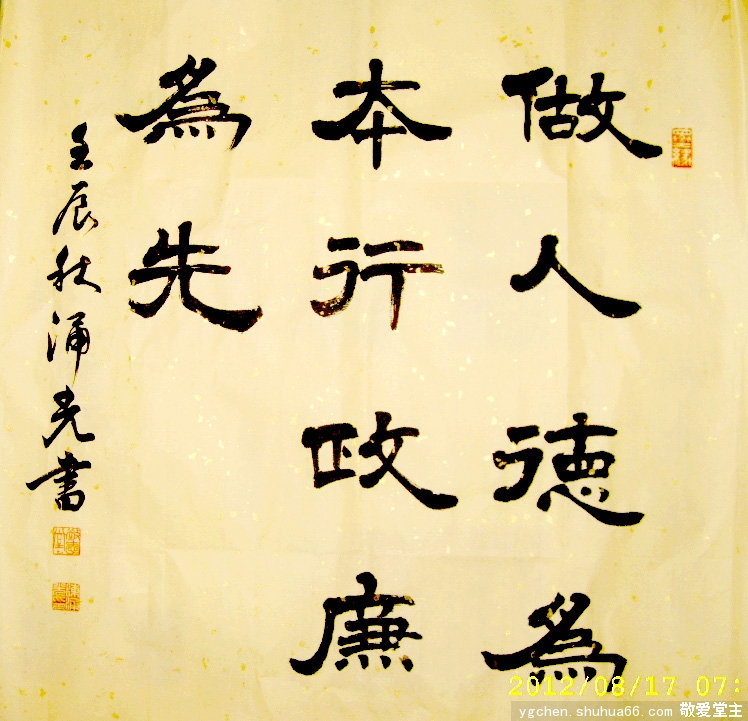 做人德為
本行政廉
為先
壬辰秋涌光書
2012/08/17 07:
ygchen.shuhua66.com 敬爱堂主